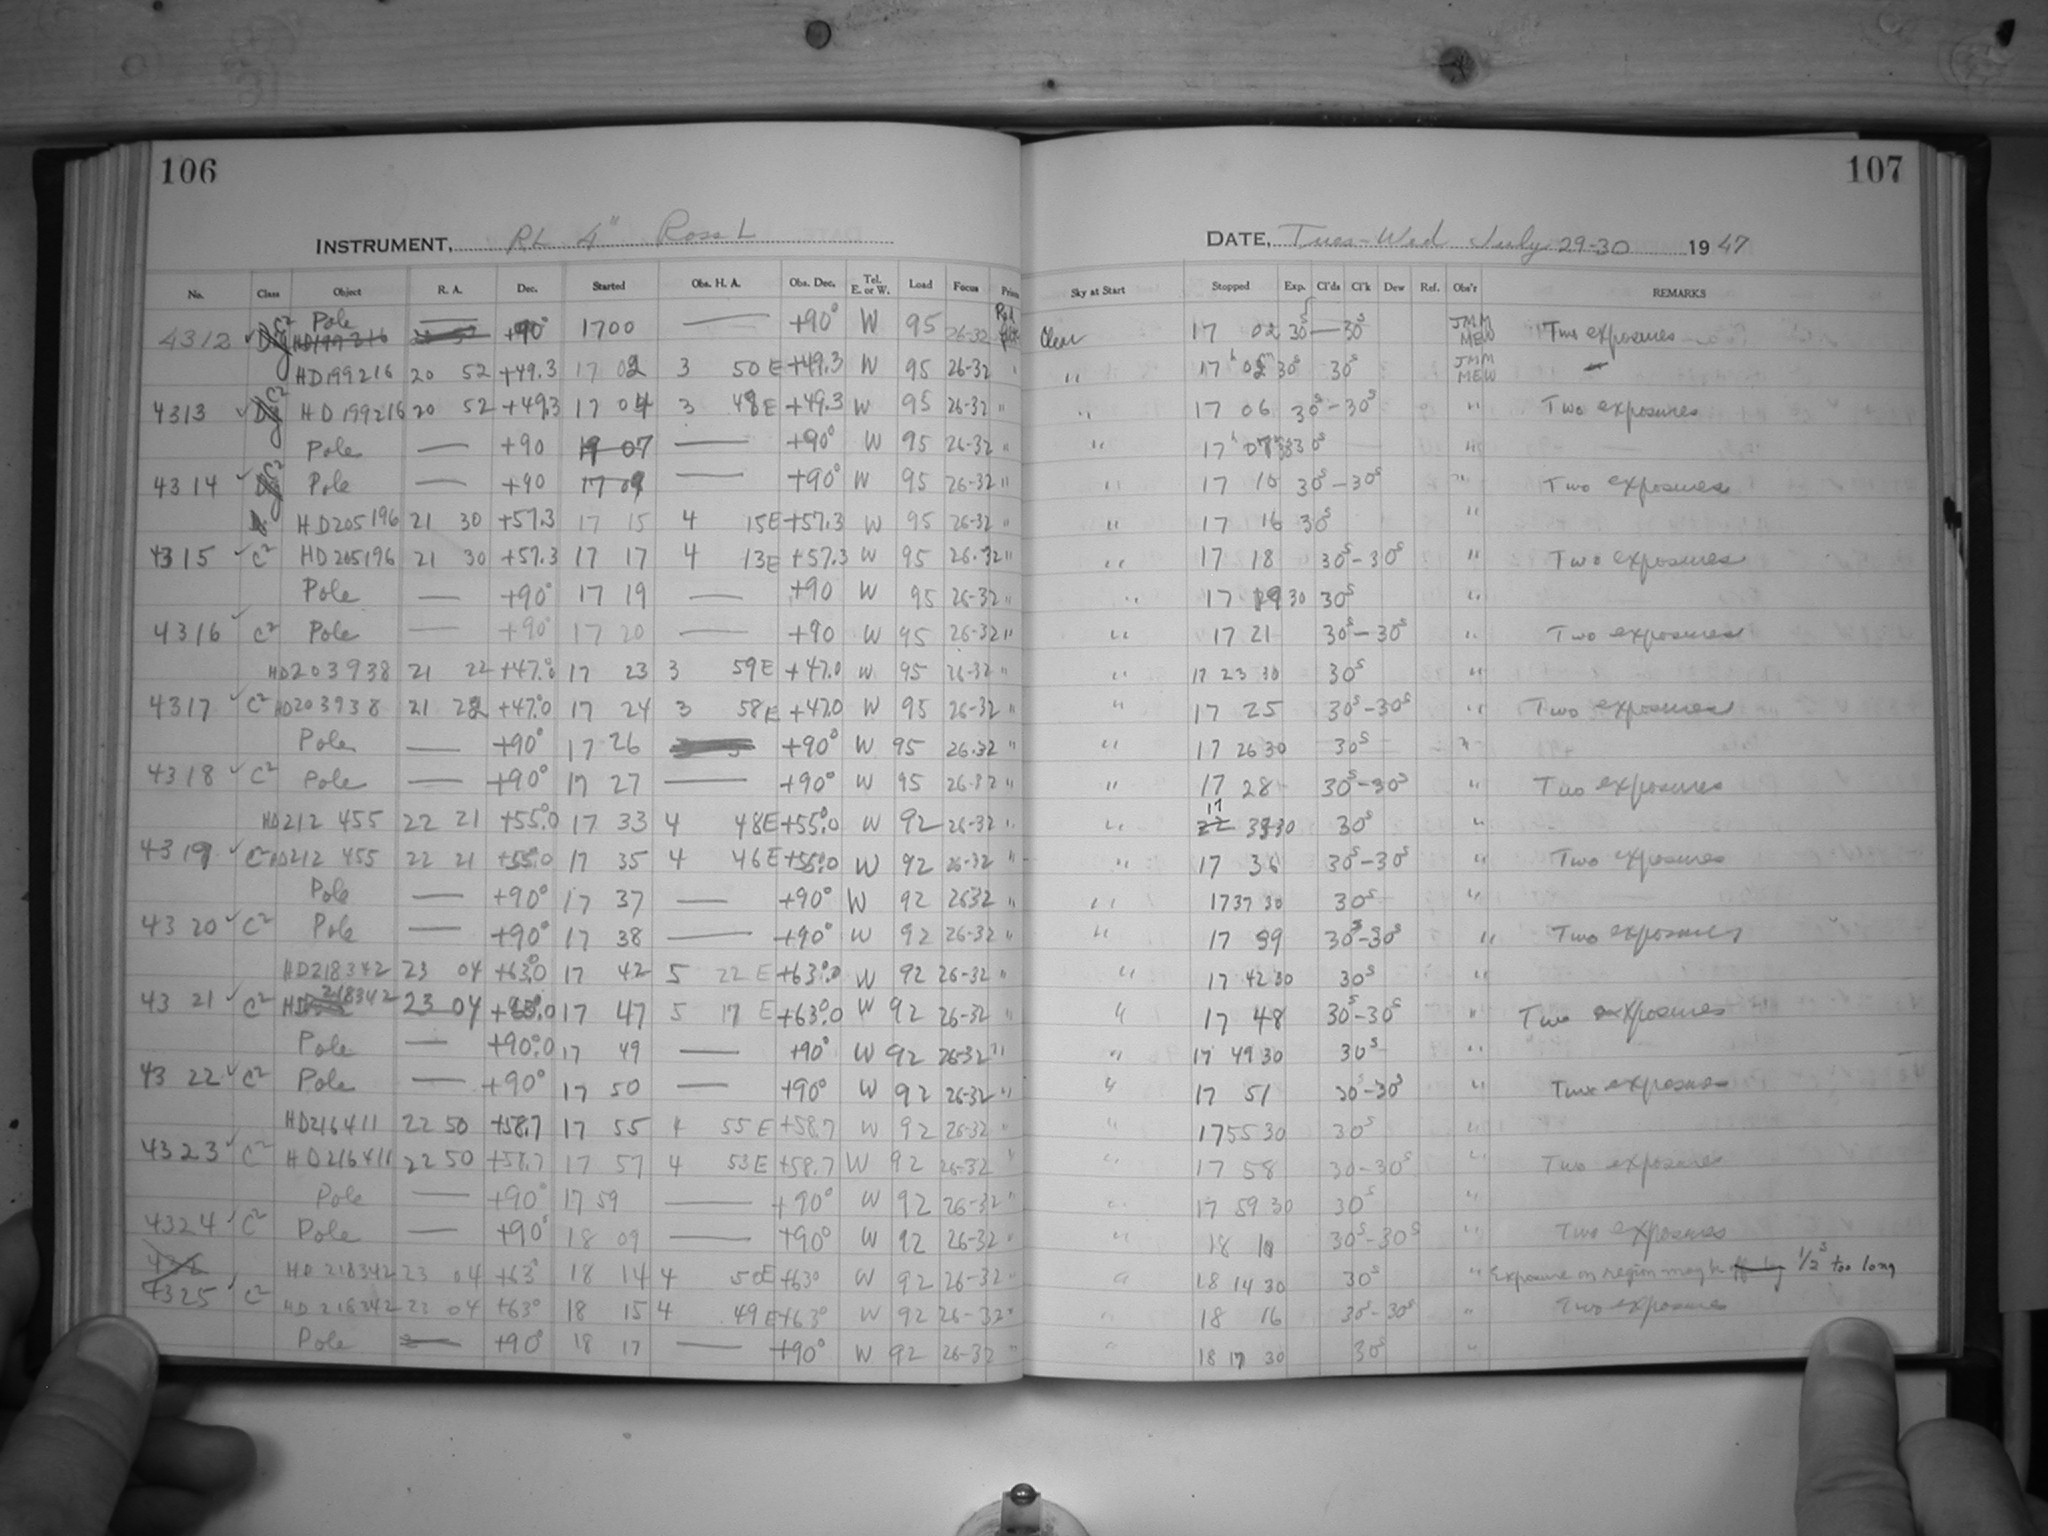 106
107
INSTRUMENT, RL 4" Ross L
DATE, Tues-Wed July 29-30 1947
No. Class Object R. A. Dec. Started Obs. H. A. Obs. Dec. Tel. E. or W. Load Focus Sky at Start Stopped Exp. Cl'ds Cl'k Dew Ref. Obs'r REMARKS
4312 ✓ C² Pole — +90° 17 00 — +90° W 95 26-32 Clear 17 02 30ˢ—30ˢ JMM MEW Two exposures
HD199216 20 52 +49.3 17 02 3 50 E +49.3 W 95 26-32 " " 17ʰ 30ˢ 30ˢ JMM MEW
4313 ✓ C² HD 199216 20 52 +49.3 17 04 3 48 E +49.3 W 95 26-32 " " 17 06 30ˢ-30ˢ " Two exposures
Pole — +90 07 — +90° W 95 26-32 " " 17ʰ 07 30ˢ "
4314 ✓ C² Pole — +90 17 09 — +90° W 95 26-32 " " 17 10 30ˢ-30ˢ " Two exposures
HD205196 21 30 +57.3 17 15 4 15E +57.3 W 95 26-32 " " 17 16 30ˢ "
4315 ✓ C² HD 205196 21 30 +57.3 17 17 4 13E +57.3 W 95 26-32 " " 17 18 30ˢ-30ˢ " Two exposures
Pole — +90° 17 19 — +90 W 95 26-32 " " 17 19 30 30ˢ "
4316 ✓ C² Pole — +90° 17 20 — +90 W 95 26-32 " " 17 21 30ˢ-30ˢ " Two exposures
HD203938 21 22 +47.0 17 23 3 59E +47.0 W 95 26-32 " " 17 23 30 30ˢ "
4317 ✓ C² HD203938 21 22 +47.0 17 24 3 58E +47.0 W 95 26-32 " " 17 25 30ˢ-30ˢ " Two exposures
Pole — +90° 17 26 +90° W 95 26-32 " " 17 26 30 30ˢ "
4318 ✓ C² Pole — +90° 17 27 — +90° W 95 26-32 " " 17 28 30ˢ-30ˢ " Two exposures
HD212 455 22 21 +55.0 17 33 4 48E +55.0 W 92 26-32 " " 17 33 30 30ˢ "
4319 ✓ C² HD212 455 22 21 +55.0 17 35 4 46E +55.0 W 92 26-32 " " 17 36 30ˢ-30ˢ " Two exposures
Pole — +90° 17 37 — +90° W 92 2632 " " 17 37 30 30ˢ "
4320 ✓ C² Pole — +90° 17 38 — +90° W 92 26-32 " " 17 39 30ˢ-30ˢ " Two exposures
HD218342 23 04 +63.0 17 42 5 22 E +63.0 W 92 26-32 " " 17 42 30 30ˢ "
4321 ✓ C² HD 218342 23 04 +63.0 17 47 5 17 E +63.0 W 92 26-32 " " 17 48 30ˢ-30ˢ " Two exposures
Pole — +90.0 17 49 — +90° W 92 26-32 " " 17 49 30 30ˢ "
4322 ✓ C² Pole — +90° 17 50 — +90° W 92 26-32 " " 17 51 30ˢ-30ˢ " Two exposures
HD216411 22 50 +58.7 17 55 4 55 E +58.7 W 92 26-32 " " 17 55 30 30ˢ "
4323 ✓ C² HD216411 22 50 +58.7 17 57 4 53E +58.7 W 92 26-32 " " 17 58 30-30ˢ " Two exposures
Pole — +90° 17 59 — +90° W 92 26-32 " " 17 59 30 30ˢ "
4324 ✓ C² Pole — +90° 18 09 — +90° W 92 26-32 " " 18 10 30ˢ-30ˢ " Two exposures
HD 218342 23 04 +63° 18 14 4 50E +63° W 92 26-32 " " 18 14 30 30ˢ " Exposure on region may be 1/2ˢ too long
4325 ✓ C² HD 218342 23 04 +63° 18 15 4 49E +63° W 92 26-32 " " 18 16 30ˢ-30ˢ " Two exposures
Pole — +90° 18 17 — +90° W 92 26-32 " " 18 17 30 30ˢ "